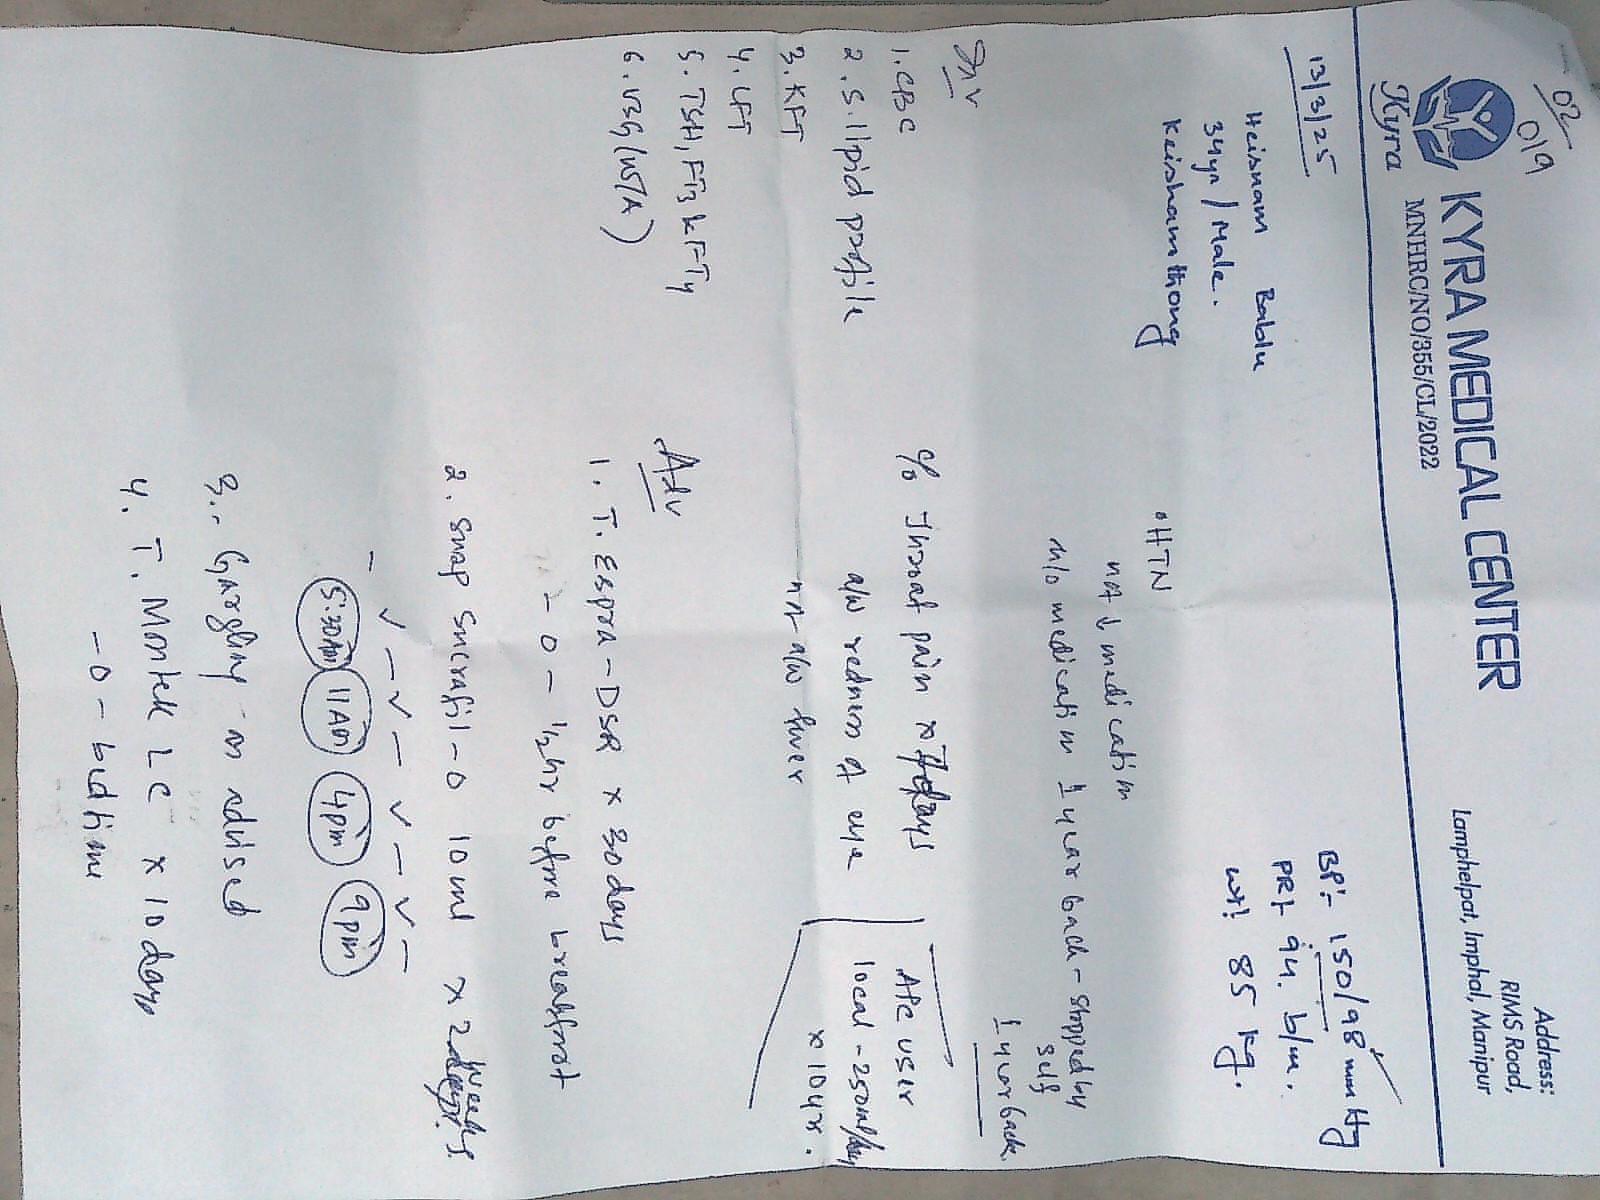 02
019
Kyra
KYRA MEDICAL CENTER
MNHRC/NO/355/CL/2022
Address:
RIMS Road,
Lamphelpat, Imphal, Manipur
13/3/25
Heisnam Bablu
34yr/Male.
Keishamthong
BP:- 150/98 mmHg
PR:- 94. b/m.
wt: 85 kg.
HTN
not ↓ medication
h/o medication 1 year back - stopped by self
1 year back.
Inv
1. CBC
2. S. lipid profile
3. KFT
4. LFT
5. TSH, FT3 & FT4
6. USG (W/A)
c/o Throat pain x 7 days
a/w redness of eye
not a/w fever
APC user
local - 250ml/day
x 10yr.
Adv
1. T. Espra - DSR x 30 days
- 0 - 1/2 hr before breakfast
2. Syrup Sucrafil - O 10ml x 2 weeks
5:30Am 11Am 4pm 9pm
3. Gargling as advised
4. T. Montek LC x 10 days
- 0 - bedtime